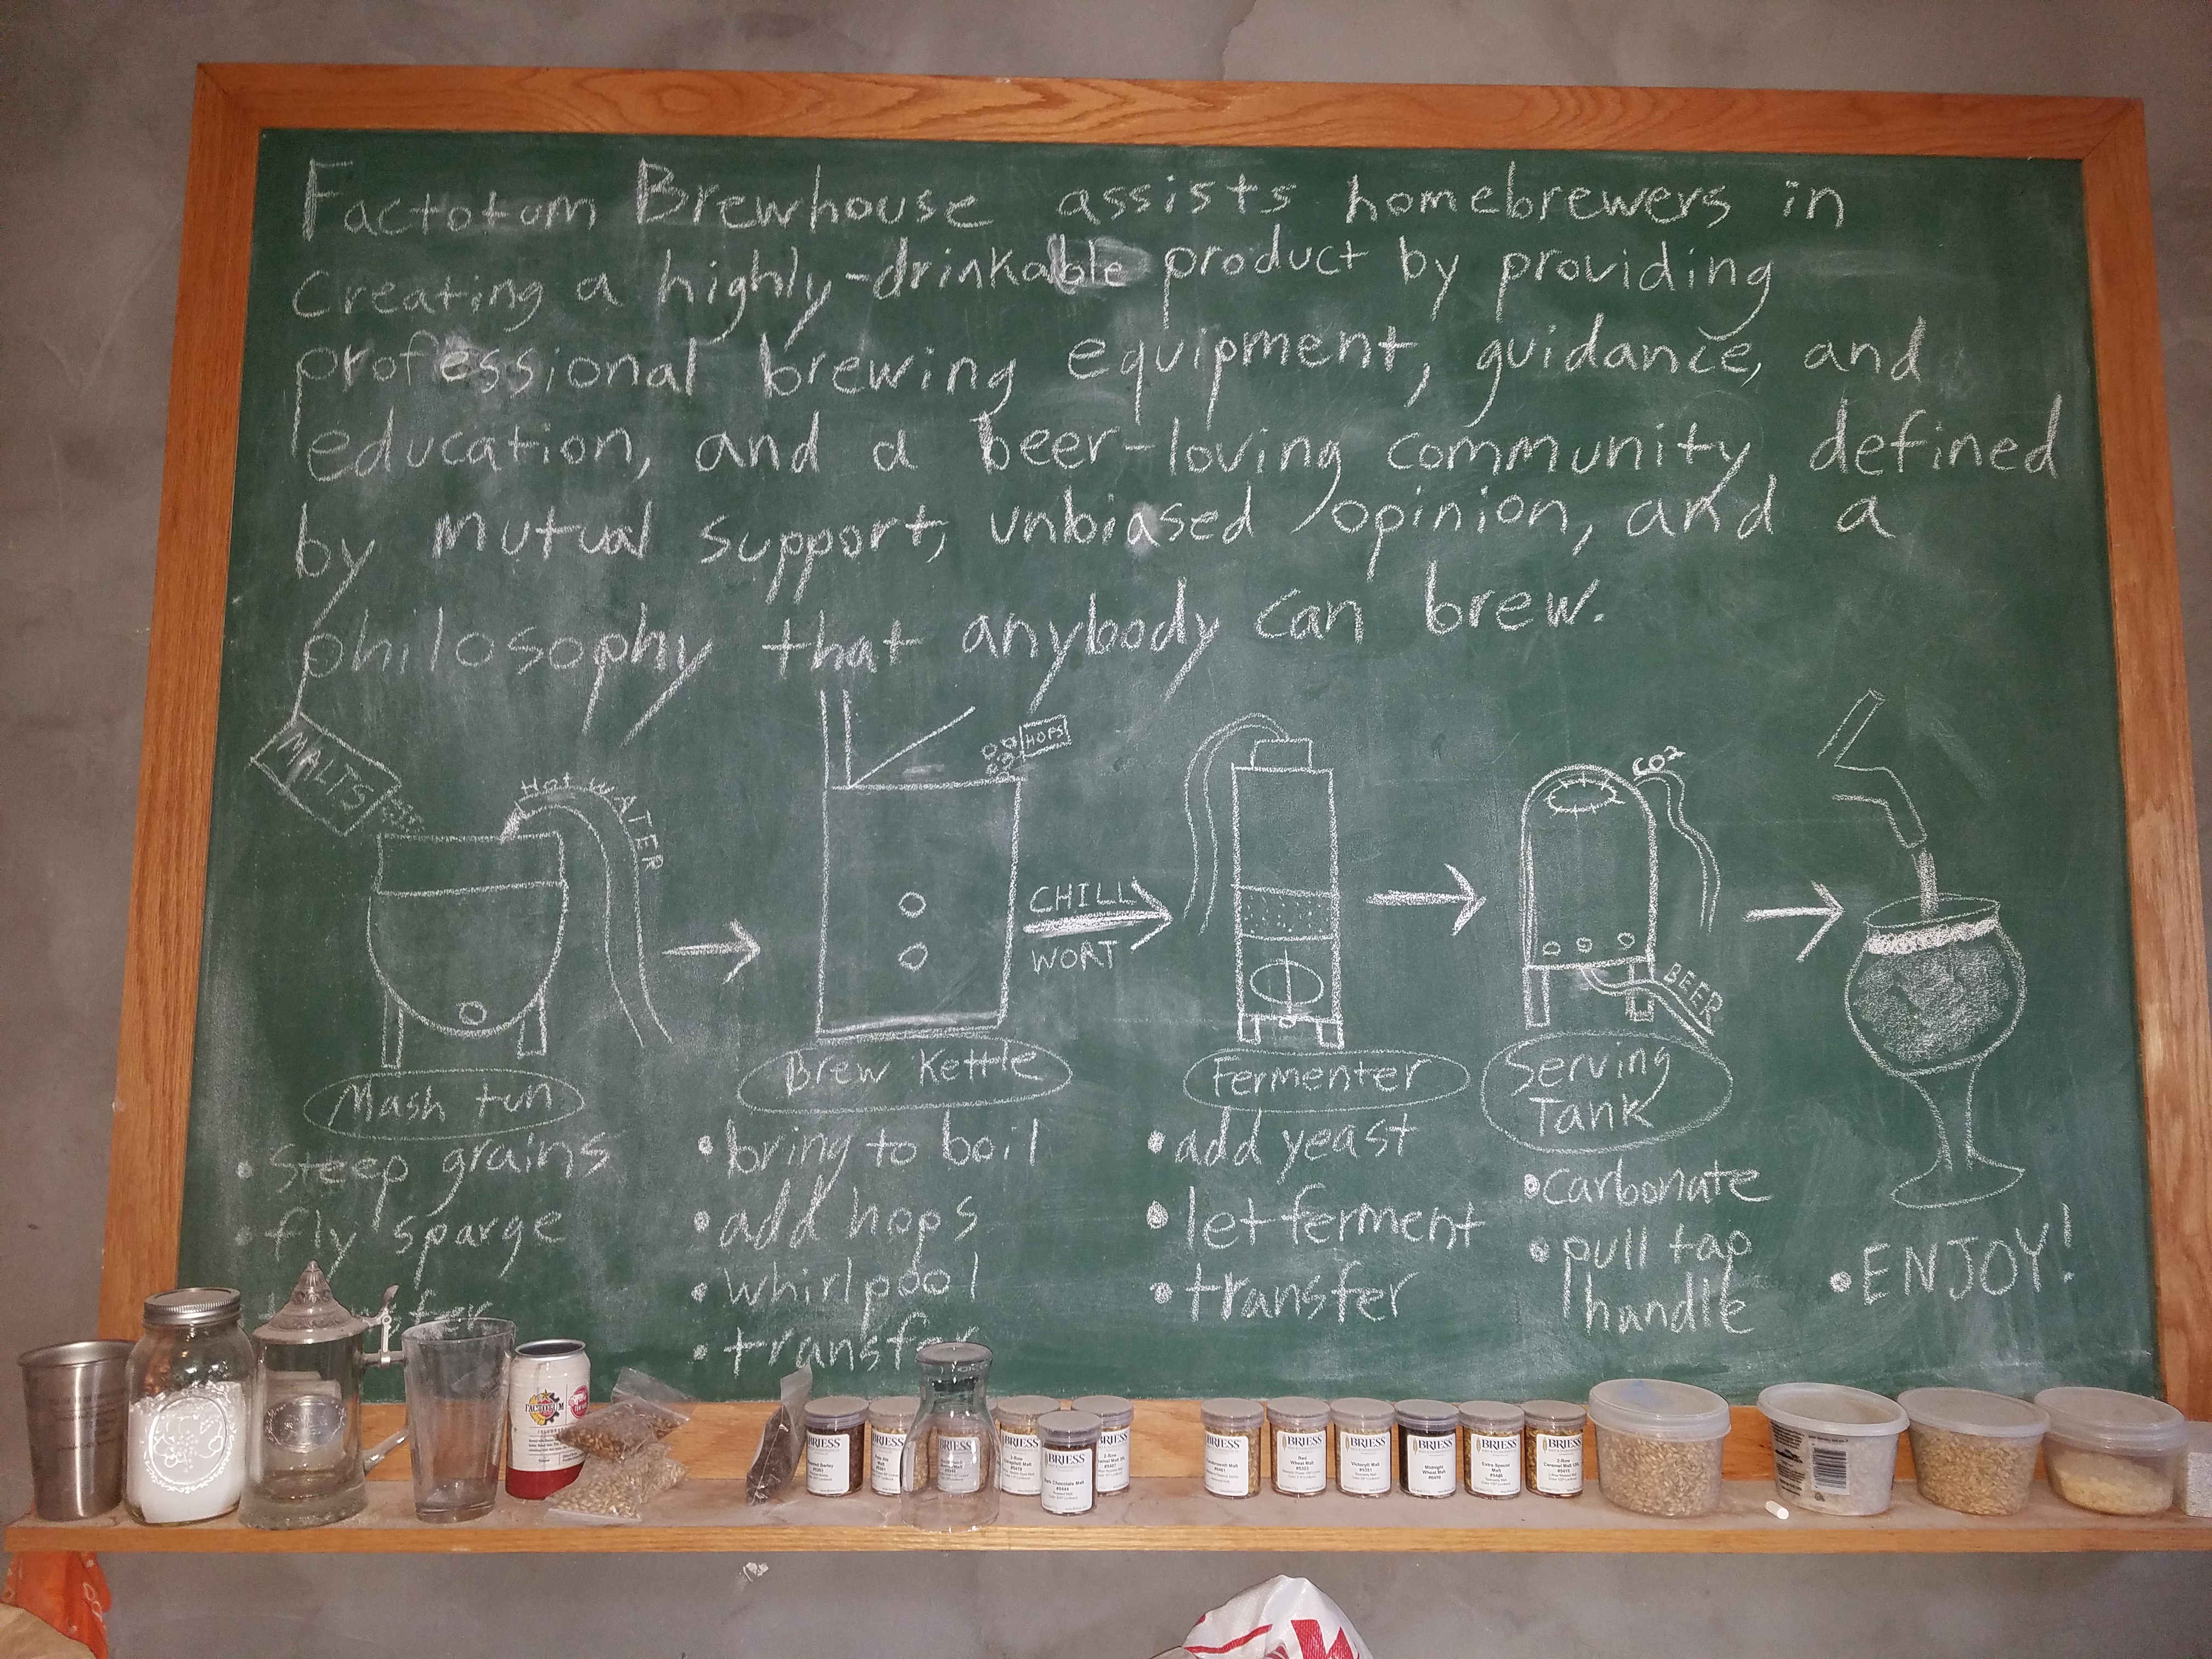 Factotum Brewhouse assists homebrewers in
creating a highly-drinkable product by providing
professional brewing equipment, guidance, and
education, and a beer-loving community, defined
by mutual support, unbiased opinion, and a
philosophy that anybody can brew.
MALTS
Hot WATER
HOPS
CHILL
WORT
CO2
BEER
Mash tun
• steep grains
• fly sparge
Brew Kettle
• bring to boil
• add hops
• whirlpool
• transfer
Fermenter
• add yeast
• let ferment
• transfer
Serving
Tank
• carbonate
• pull tap
handle
• ENJOY!
FACTOTUM
BRIESS
BRIESS
BRIESS
BRIESS
Dark Chocolate Malt
BRIESS
BRIESS
BRIESS
Red
Wheat Malt
BRIESS
Victory® Malt
BRIESS
Midnight
Wheat Malt
BRIESS
Extra Special
Malt
BRIESS
2-Row